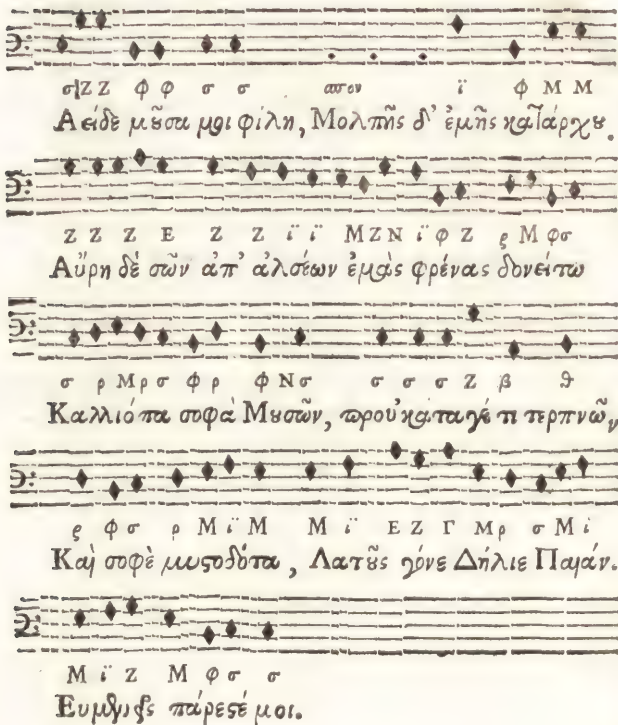 σ Ζ Ζ Φ Φ σ σ ϊ Φ Μ Μ
Ἄειδε μοῦσα μοι φίλη, Μολπῆς δ' ἐμῆς κατάρχου.
Ζ Ζ Ζ Ε Ζ Ζ ϊ ϊ Μ Ζ Ν ϊ Φ Ζ ς Μ Φ σ
Αὔρη δὲ σῶν ἀπ' ἀλσέων ἐμὰς φρένας δονείτω
σ ρ Μ ρ σ Φ ρ Φ Ν σ σ σ σ Ζ β ϑ
Καλλιόπα σοφὰ Μουσῶν, προυκαταγέτι τερπνῶν,
ς Φ σ ρ Μ ϊ Μ Μ ϊ Ε Ζ Γ Μ ρ σ Μ ϊ
Καὶ σοφὲ μυστοδότα, Λατοῦς γόνε Δήλιε Παιάν.
Μ ϊ Ζ Μ Φ σ σ
πάρεστέ μοι.